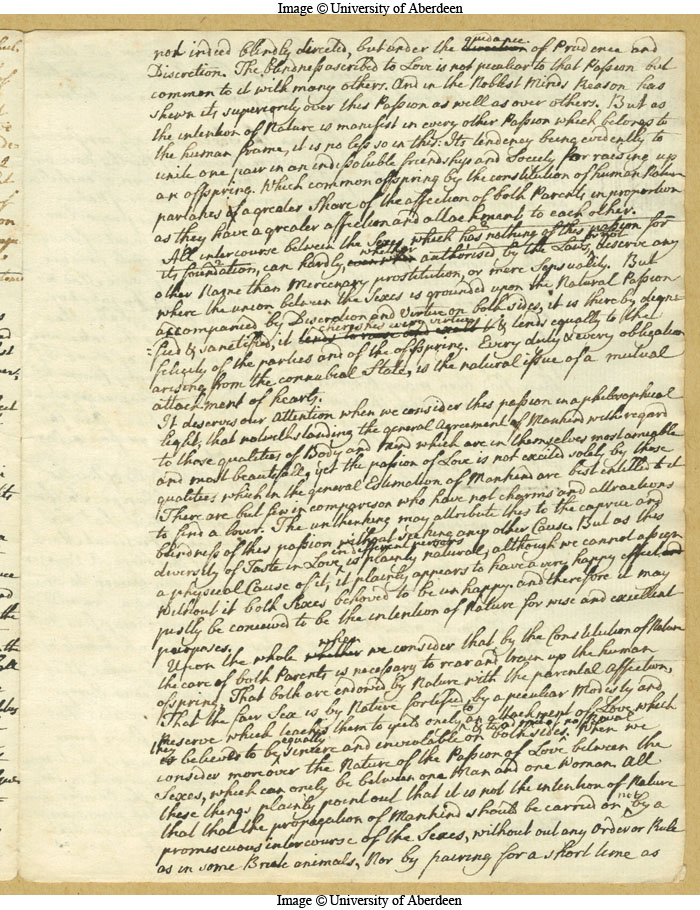 Image © University of Aberdeen
not indeed blindly directed, but under the direction guidance of Prudence and
Discretion. The blindness ascribed to Love is not peculiar to that Passion but
common to it with many others. And in the Noblest Minds Reason has
shewn its superiority over this Passion as well as over others. But as
the intention of Nature is manifest in every other Passion which belongs to
the human frame, it is no less so in this. Its tendency being evidently to
unite one pair in an indissoluble friendship and Society for raising up
an offspring. Which common offspring by the constitution of human Nature
partakes of a greater Share of the affection of both Parents in proportion
as they have a greater affection and attachment to each other.
All intercourse between the Sexes, which has nothing of this notion for
its foundation, can hardly, even when whether authorised by the Laws, or not deserve any
other Name than Mercenary prostitution, or mere Sensuality. But
where the union between the Sexes is grounded upon the Natural Passion
accompanied by Discretion and Virtue on both sides, it is there by digni-
=fied & sanctified, it tends to raise and exalt cherishes every virtue & tends equally to the
felicity of the parties and of the offspring. Every duty & every obligation
arising from the connubial State, is the natural issue of a mutual
attachment of hearts.
It deserves our Attention when we consider this passion in a philosophical
light, that notwithstanding the general Agreement of Mankind with regard
to those qualities of Body and Mind which are in themselves most amiable
and most beautifull, yet the passion of Love is not excited solely by those
qualities which in the general Estimation of Mankind are best entitled to it
There are but few in comparison who have not charms and attractions
to find a lover. The unthinking may attribute this to the caprice and
blindness of this passion without seeking any other Cause. But as this
diversity of Taste in Love in different persons is plainly natural, although we cannot assign
a physical Cause of it, it plainly appears to have a very happy effect and
without it both Sexes behoved to be unhappy. and therefore it may
justly be conceived to be the intention of Nature for wise and excellent
purposes.
Upon the whole whether when we consider that by the Constitution of Nature
the care of both Parents is necessary to rear and train up the human
ofspring, That both are endowed by Nature with the parental Affection,
That the fair Sex is by Nature fortified by a peculiar Modesty and
Reserve which teaches them to yield onely to an attachment of Love which
they is believed to be equally sincere and inviolable on both sides. & to admit no Rival When we
consider moreover the Nature of the Passion of Love between the
Sexes, which can onely be between one Man and one Woman. All
these things plainly point out that it is not the intention of Nature
that that the propagation of Mankind should be carried on not by a
promiscuous intercourse of the Sexes, without out any Order or Rule
as in some Brute animals, Nor by pairing for a short time as
Image © University of Aberdeen